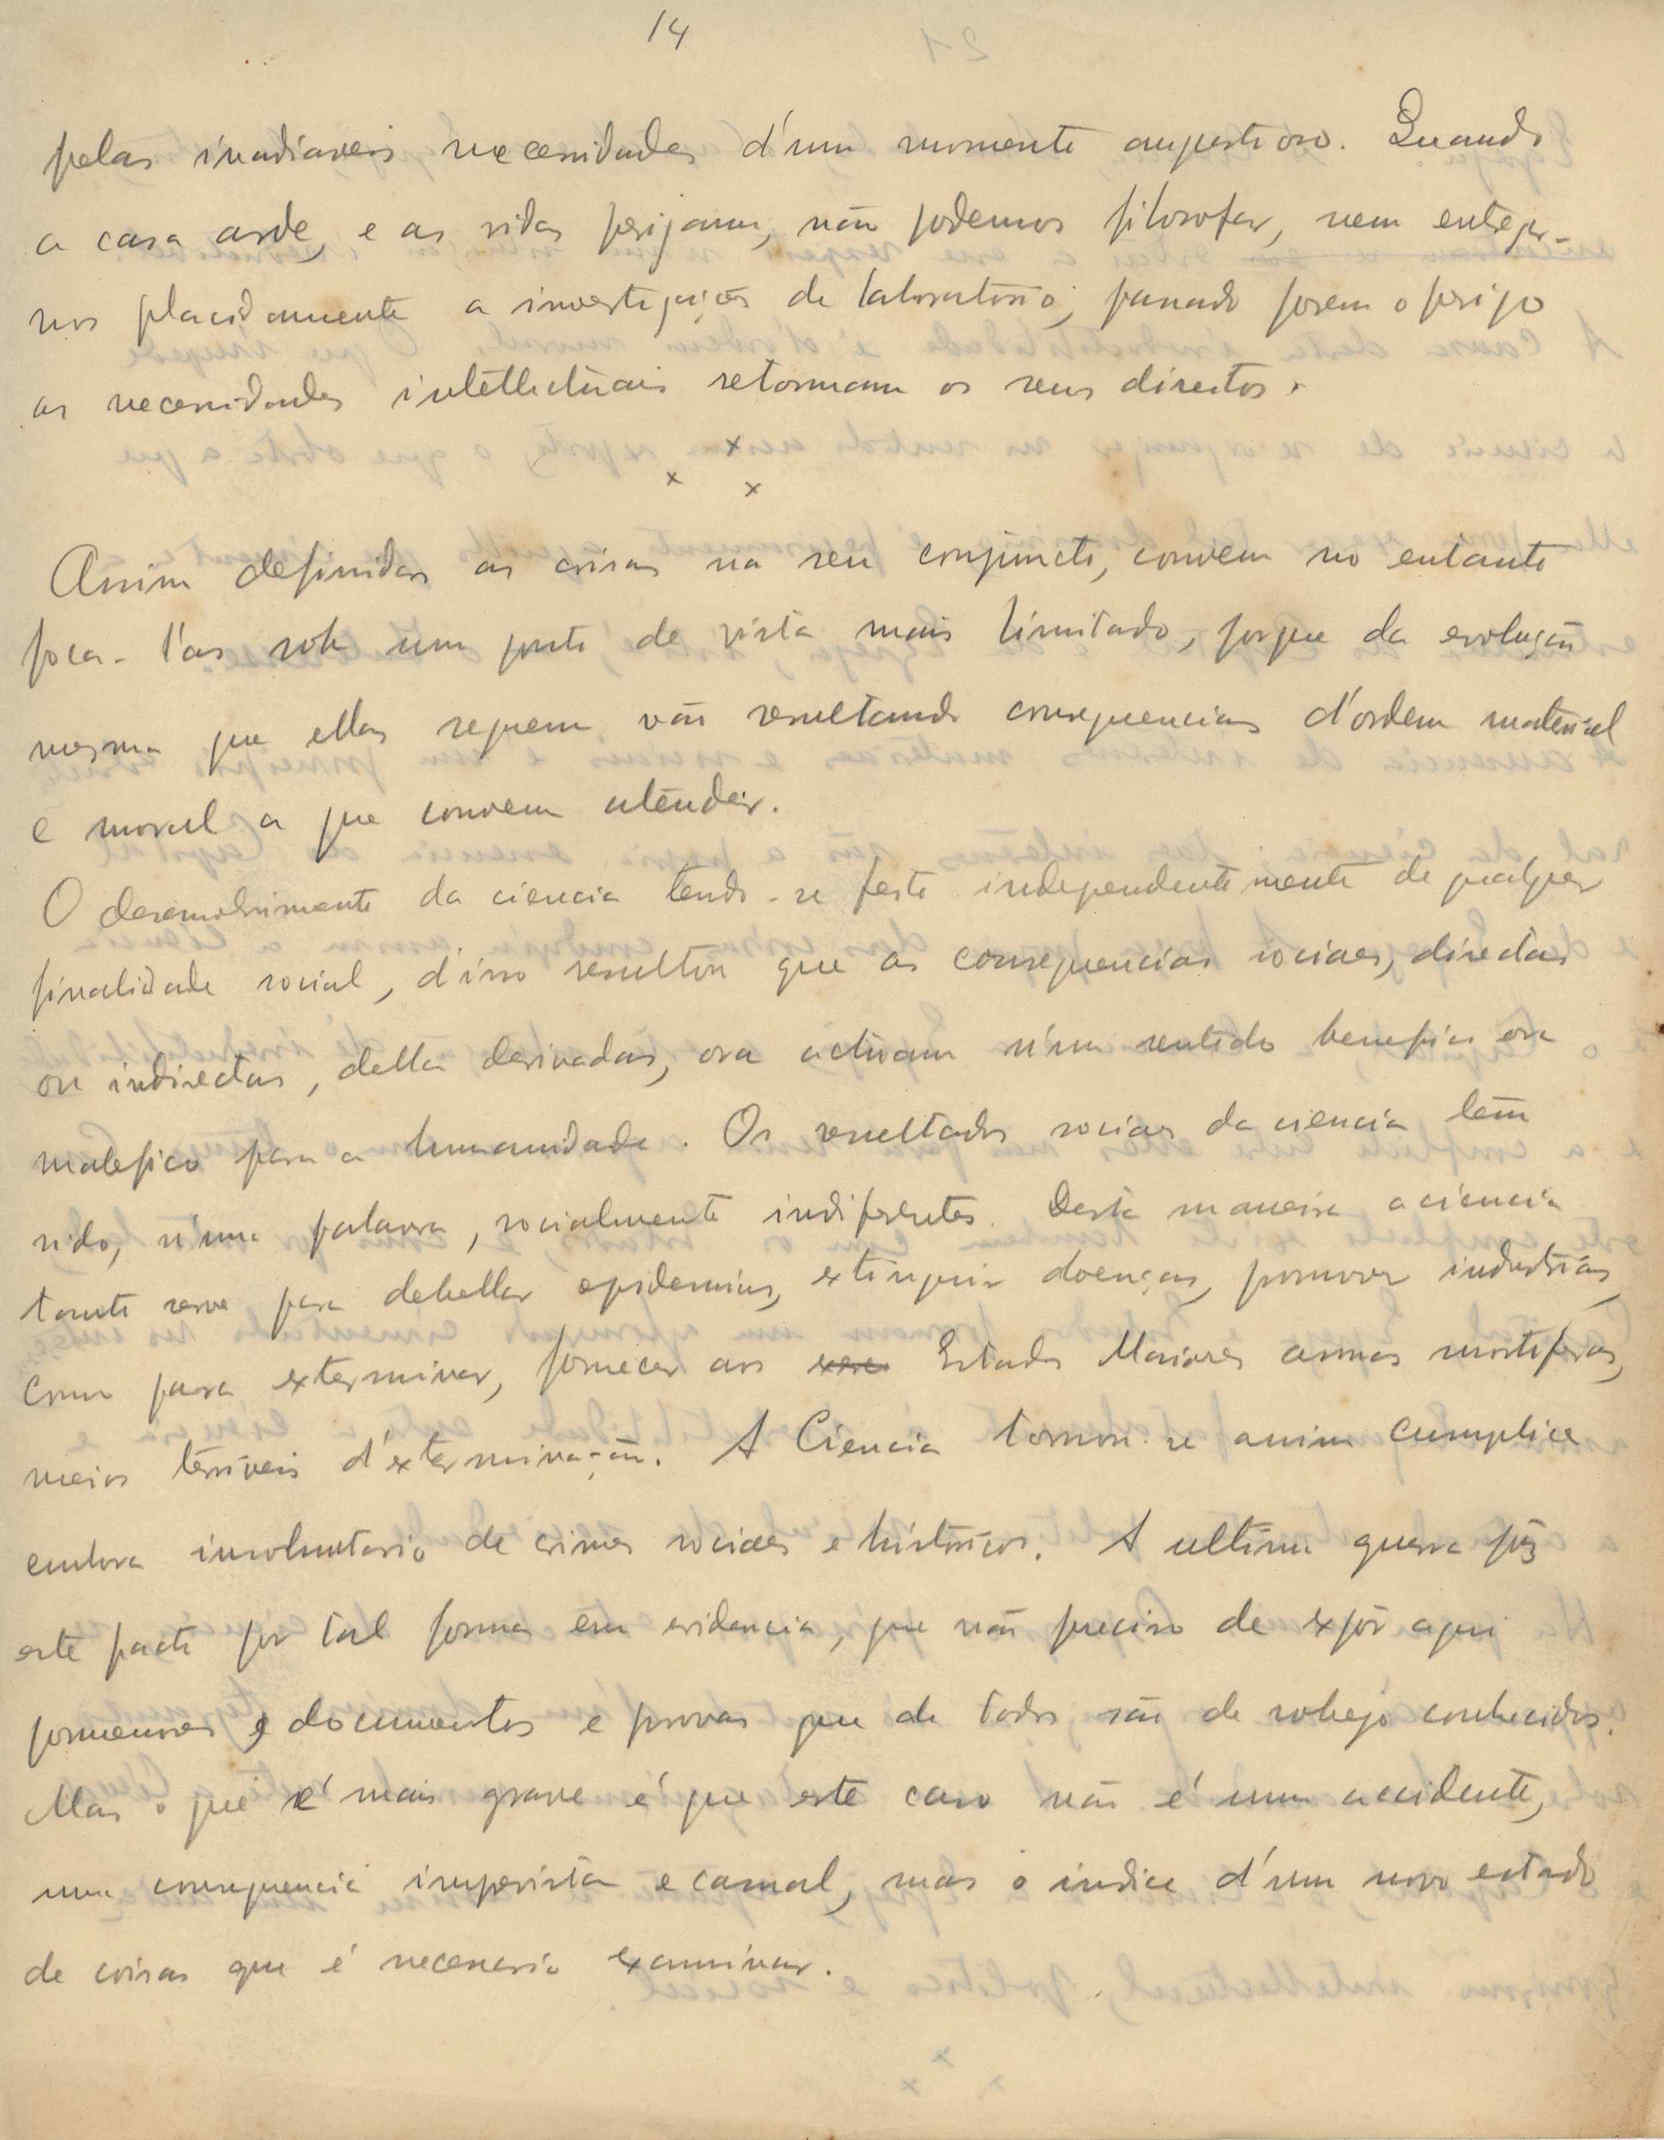 14
pelas inadiaveis necessidades d'um momento angustioso. Quando
a casa arde, e as vidas perigam, não podemos filosofar, nem entregar-
nos placidamente a investigações de laboratorio; passado porem o perigo
as necessidades intellectuais retomam os seus direitos.
x
x x
Assim definidas as coisas na seu conjuncto, convem no entanto
foca-l'as sob um ponto de vista mais limitado, porque da evolução
mesma que ellas seguem vão resultando consequencias d'ordem material
e moral a que convem atender.
O desenvolvimento da ciencia tendo-se feito independentemente de qualquer
finalidade social, d'isso resultou que as consequencias sociaes, directas
ou indirectas, della derivadas, ora actuam n'um sentido benefico ora
malefico para a humanidade. Os resultados sociaes da ciencia têm
sido, n'uma palavra, socialmente indiferentes. Desta maneira a ciencia
tanto serve para debellar epidemias, extinguir doenças, promover industrias,
como para exterminar, fornecer aos Estados Maiores armas mortiferas,
meios terriveis d'exterminação. A Ciencia tornou-se assim cumplice
embora involuntario de crimes sociaes e historicos. A ultima guerra pôz
este facto por tal forma em evidencia, que não preciso de expôr aqui
pormenores e documentos e provas que de todos são de sobejo conhecidos.
Mas o que é mais grave é que este caso não é um accidente,
uma consequencia imprevista e casual, mas o indice d'um novo estado
de coisas que é necessario examinar.